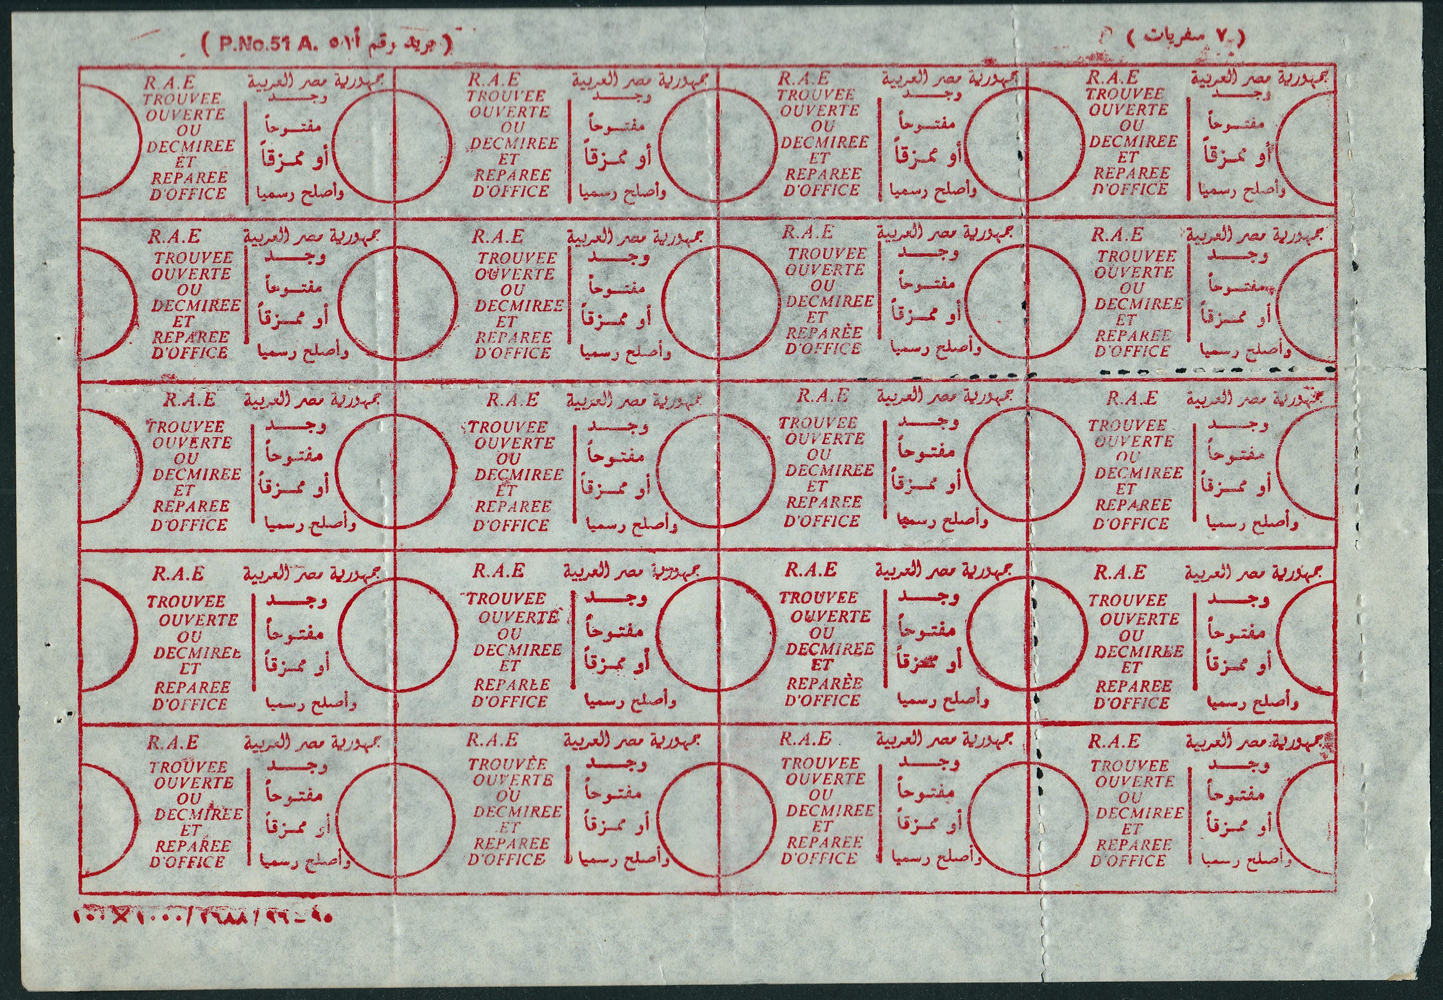 ( ٧ سفريات ) ( بريد رقم ٥١ أ P.No.51 A. )
R.A.E جمهورية مصر العربية R.A.E جمهورية مصر العربية R.A.E جمهورية مصر العربية R.A.E جمهورية مصر العربية
TROUVEE وجد TROUVEE وجد TROUVEE وجد TROUVEE وجد
OUVERTE OUVERTE OUVERTE OUVERTE
OU مفتوحاً OU مفتوحاً OU مفتوحاً OU مفتوحاً
DECMIREE أو ممزقاً DECMIREE أو ممزقاً DECMIREE أو ممزقاً DECMIREE أو ممزقاً
ET ET ET ET
REPAREE REPAREE REPAREE REPAREE
D'OFFICE وأصلح رسميا D'OFFICE وأصلح رسميا D'OFFICE وأصلح رسميا D'OFFICE وأصلح رسميا
R.A.E جمهورية مصر العربية R.A.E جمهورية مصر العربية R.A.E جمهورية مصر العربية R.A.E جمهورية مصر العربية
TROUVEE وجد TROUVEE وجد TROUVEE وجد TROUVEE وجد
OUVERTE OUVERTE OUVERTE OUVERTE
OU مفتوحاً OU مفتوحاً OU مفتوحاً OU مفتوحاً
DECMIREE أو ممزقاً DECMIREE أو ممزقاً DECMIREE أو ممزقاً DECMIREE أو ممزقاً
ET ET ET ET
REPAREE REPAREE REPARÈE REPAREE
D'OFFICE وأصلح رسميا D'OFFICE وأصلح رسميا D'OFFICE وأصلح رسميا D'OFFICE وأصلح رسميا
R.A.E جمهورية مصر العربية R.A.E جمهورية مصر العربية R.A.E جمهورية مصر العربية R.A.E جمهورية مصر العربية
TROUVEE وجد TROUVEE وجد TROUVEE وجد TROUVEE وجد
OUVERTE OUVERTE OUVERTE OUVERTE
OU مفتوحاً OU مفتوحاً OU مفتوحاً OU مفتوحاً
DECMIREE أو ممزقاً DECMIREE أو ممزقاً DECMIREE أو ممزقاً DECMIREE أو ممزقاً
ET ET ET ET
REPAREE REPAREE REPAREE REPAREE
D'OFFICE وأصلح رسميا D'OFFICE وأصلح رسميا D'OFFICE وأصلح رسميا D'OFFICE وأصلح رسميا
R.A.E جمهورية مصر العربية R.A.E جمهورية مصر العربية R.A.E جمهورية مصر العربية R.A.E جمهورية مصر العربية
TROUVEE وجد TROUVEE وجد TROUVEE وجد TROUVEE وجد
OUVERTE OUVERTE OUVERTE OUVERTE
OU مفتوحاً OU مفتوحاً OU مفتوحاً OU مفتوحاً
DECMIREE أو ممزقاً DECMIREE أو ممزقاً DECMIREE أو ممزقاً DECMIREE أو ممزقاً
ET ET ET ET
REPAREE REPAREE REPARÈE REPAREE
D'OFFICE وأصلح رسميا D'OFFICE وأصلح رسميا D'OFFICE وأصلح رسميا D'OFFICE وأصلح رسميا
R.A.E جمهورية مصر العربية R.A.E جمهورية مصر العربية R.A.E جمهورية مصر العربية R.A.E جمهورية مصر العربية
TROUVEE وجد TROUVEE وجد TROUVEE وجد TROUVEE وجد
OUVERTE OUVERTE OUVERTE OUVERTE
OU مفتوحاً OU مفتوحاً OU مفتوحاً OU مفتوحاً
DECMIREE أو ممزقاً DECMIREE أو ممزقاً DECMIREE أو ممزقاً DECMIREE أو ممزقاً
ET ET ET ET
REPAREE REPAREE REPAREE REPAREE
D'OFFICE وأصلح رسميا D'OFFICE وأصلح رسميا D'OFFICE وأصلح رسميا D'OFFICE وأصلح رسميا
١٠٠×١٠٠٠/٢٦٨٨/٩٦-٩٥